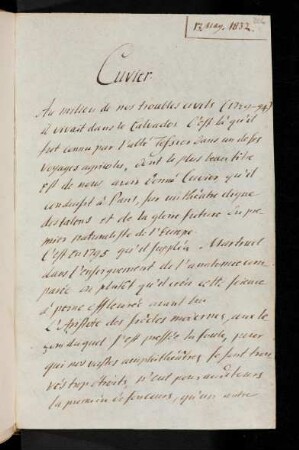 12 May. 1832.
Cuvier.
Au milieu de nos troubles civils
il vivait dans le Calvados. C'est là qu'il
fut connu par l'abbé Tessier dans un de ses
voyages agricoles, dont le plus beau titre
est de nous avoir donné Cuvier, qu'il
conduisit à Paris, sur un théâtre digne
des talens et de la gloire future du pre
mier naturaliste de l'Europe
C'est en 1795 qu'il suppléa Mertrud
dans l'enseignement de l'anatomie com
parée ou plutôt qu'il créa cette science
à peine effleurée avant lui
L'Aristote des siècles modernes, sous le
nom duquel s'est pressée la foule, pour
qui nos vastes amphithéâtres, se sont trou
vés trop étroits, n'eut pour auditeurs
la première de ses cours, qu'un